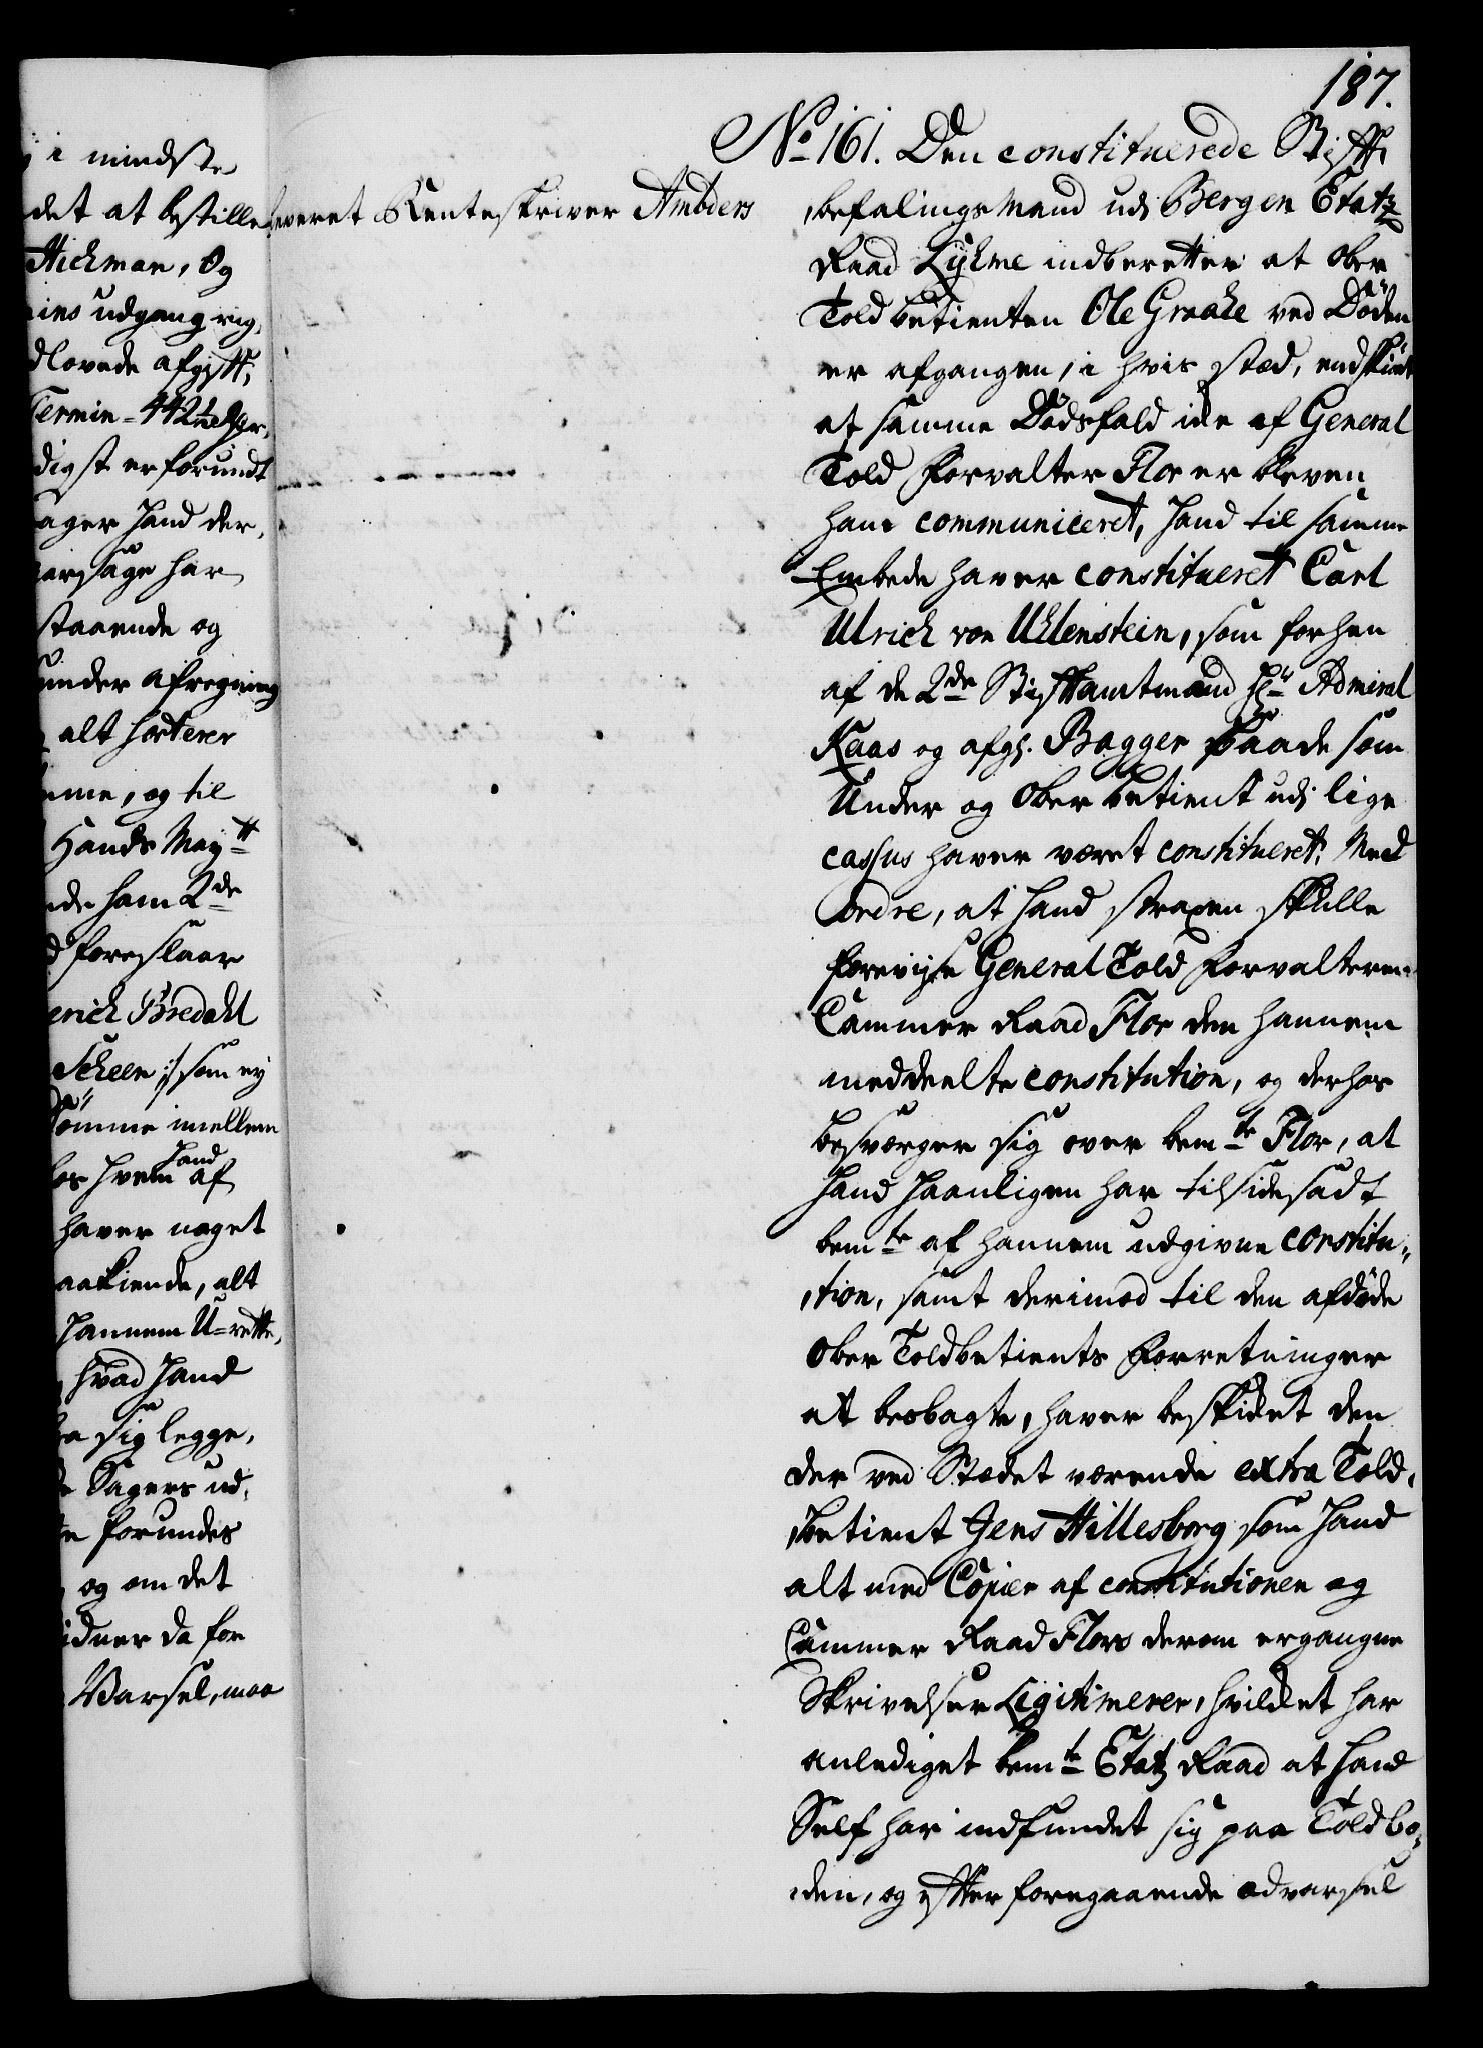 187.
i mindste
det at bestille
Hickman, Og
ins udgang rig,
dlovede afgift,
Termin - 442½ rdr,
digst erforundt
ager hand der,
arsage har
staaende og
under afregning
alt horterer
eme, og til
Hands Maytt
nde ham 2de
d foreslaar
erich Bredahl
Scheen :/ som ej
Dömme imellem
hand
os hvem af
haver noget
aakiende, alt
hannem U-rette,
hvad hand
a sig legge,
Sagers ud,
forundes
og om det
idner da for
Varsel, maa
leveret Renteskriver Ambders
No 161. Den constituerede Stift,
befalingsmand udi Bergen Etatz
Raad Lykme indberetter at ober
Toldbetienten Ole Graahe ved Döden
er afgangen, i hvis stæd, endskiönt
at samme Dödsfald icke af General
Told Forvalter Flor er bleven
ham communiceret, hand til samme
Embede haver constitueret Carl
Ulrich von Uhlenstein, som forhen
af de 2de Stiftamtmænd Hr Admiral
Kaas og afg. Bagger baade som
Under og Ober betient udi lige
cassus haver været constitueret; Med
ordre, at hand straxen skulle
forevise General Told Forvalteren
Cammer Raad Flor den hannem
meddeelte constitution, og derhos
besværger sig over bemte Flor, at
hand haanligen har tilsidesadt
bemte af hannem udgivne constitu,,
,tion, samt derimod til den afdöde
Ober Toldbetients Forretninger
at beobagte, haver beskicket den
der ved Stædet værende extra Told,
,betient Jens Hillesborg som hand
alt med Copier af constitutionen og
Cammer Raad Flors derom ergangne
Skrivelser Legitimerer, hvilcket har
anlediget bemte Etatz Raad at hand
Self har indfundet sig paa Toldbo,
,den, og efter foregaaende advarsel